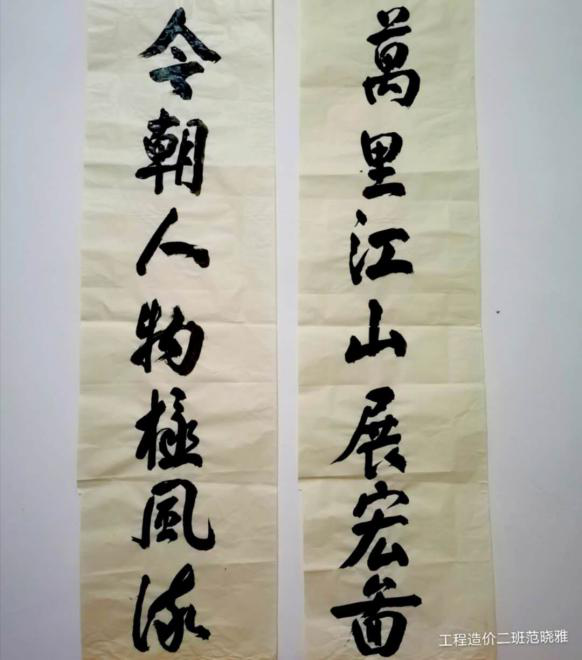 萬里江山展宏啚
今朝人物極風流
工程造价二班范晓雅